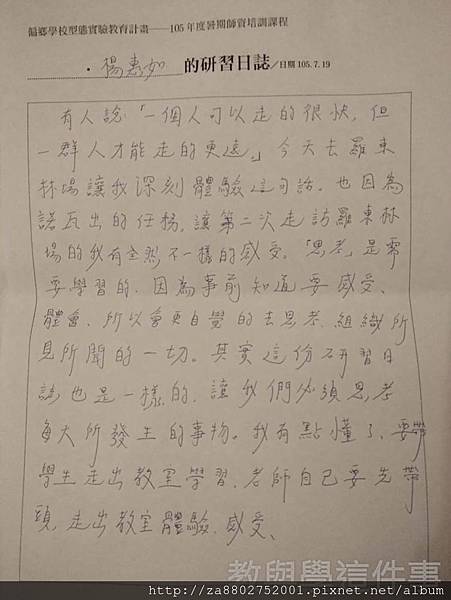 偏鄉學校型態實驗教育計畫——105年度暑期師資培訓課程
·楊惠如 的研習日誌/日期105.7.19
有人說「一個人可以走的很快,但
一群人才能走的更遠」今天去羅東
林場讓我深刻體驗這句話。也因為
諾瓦出的任務,讓第二次走訪羅東林
場的我有全然不一樣的感受。「思考」是需
要學習的、因為事前知道要感受、
體會、所以會更自覺的去思考、組織所
見所聞的一切。其實這份研習日
誌也是一樣的,讓我們必須思考
每天所發生的事物。我有點懂了、要帶
學生走出教室學習、老師自己要先帶
頭走出教室體驗、感受、
教與學這件事
http://za8802752001.pixnet.net/album